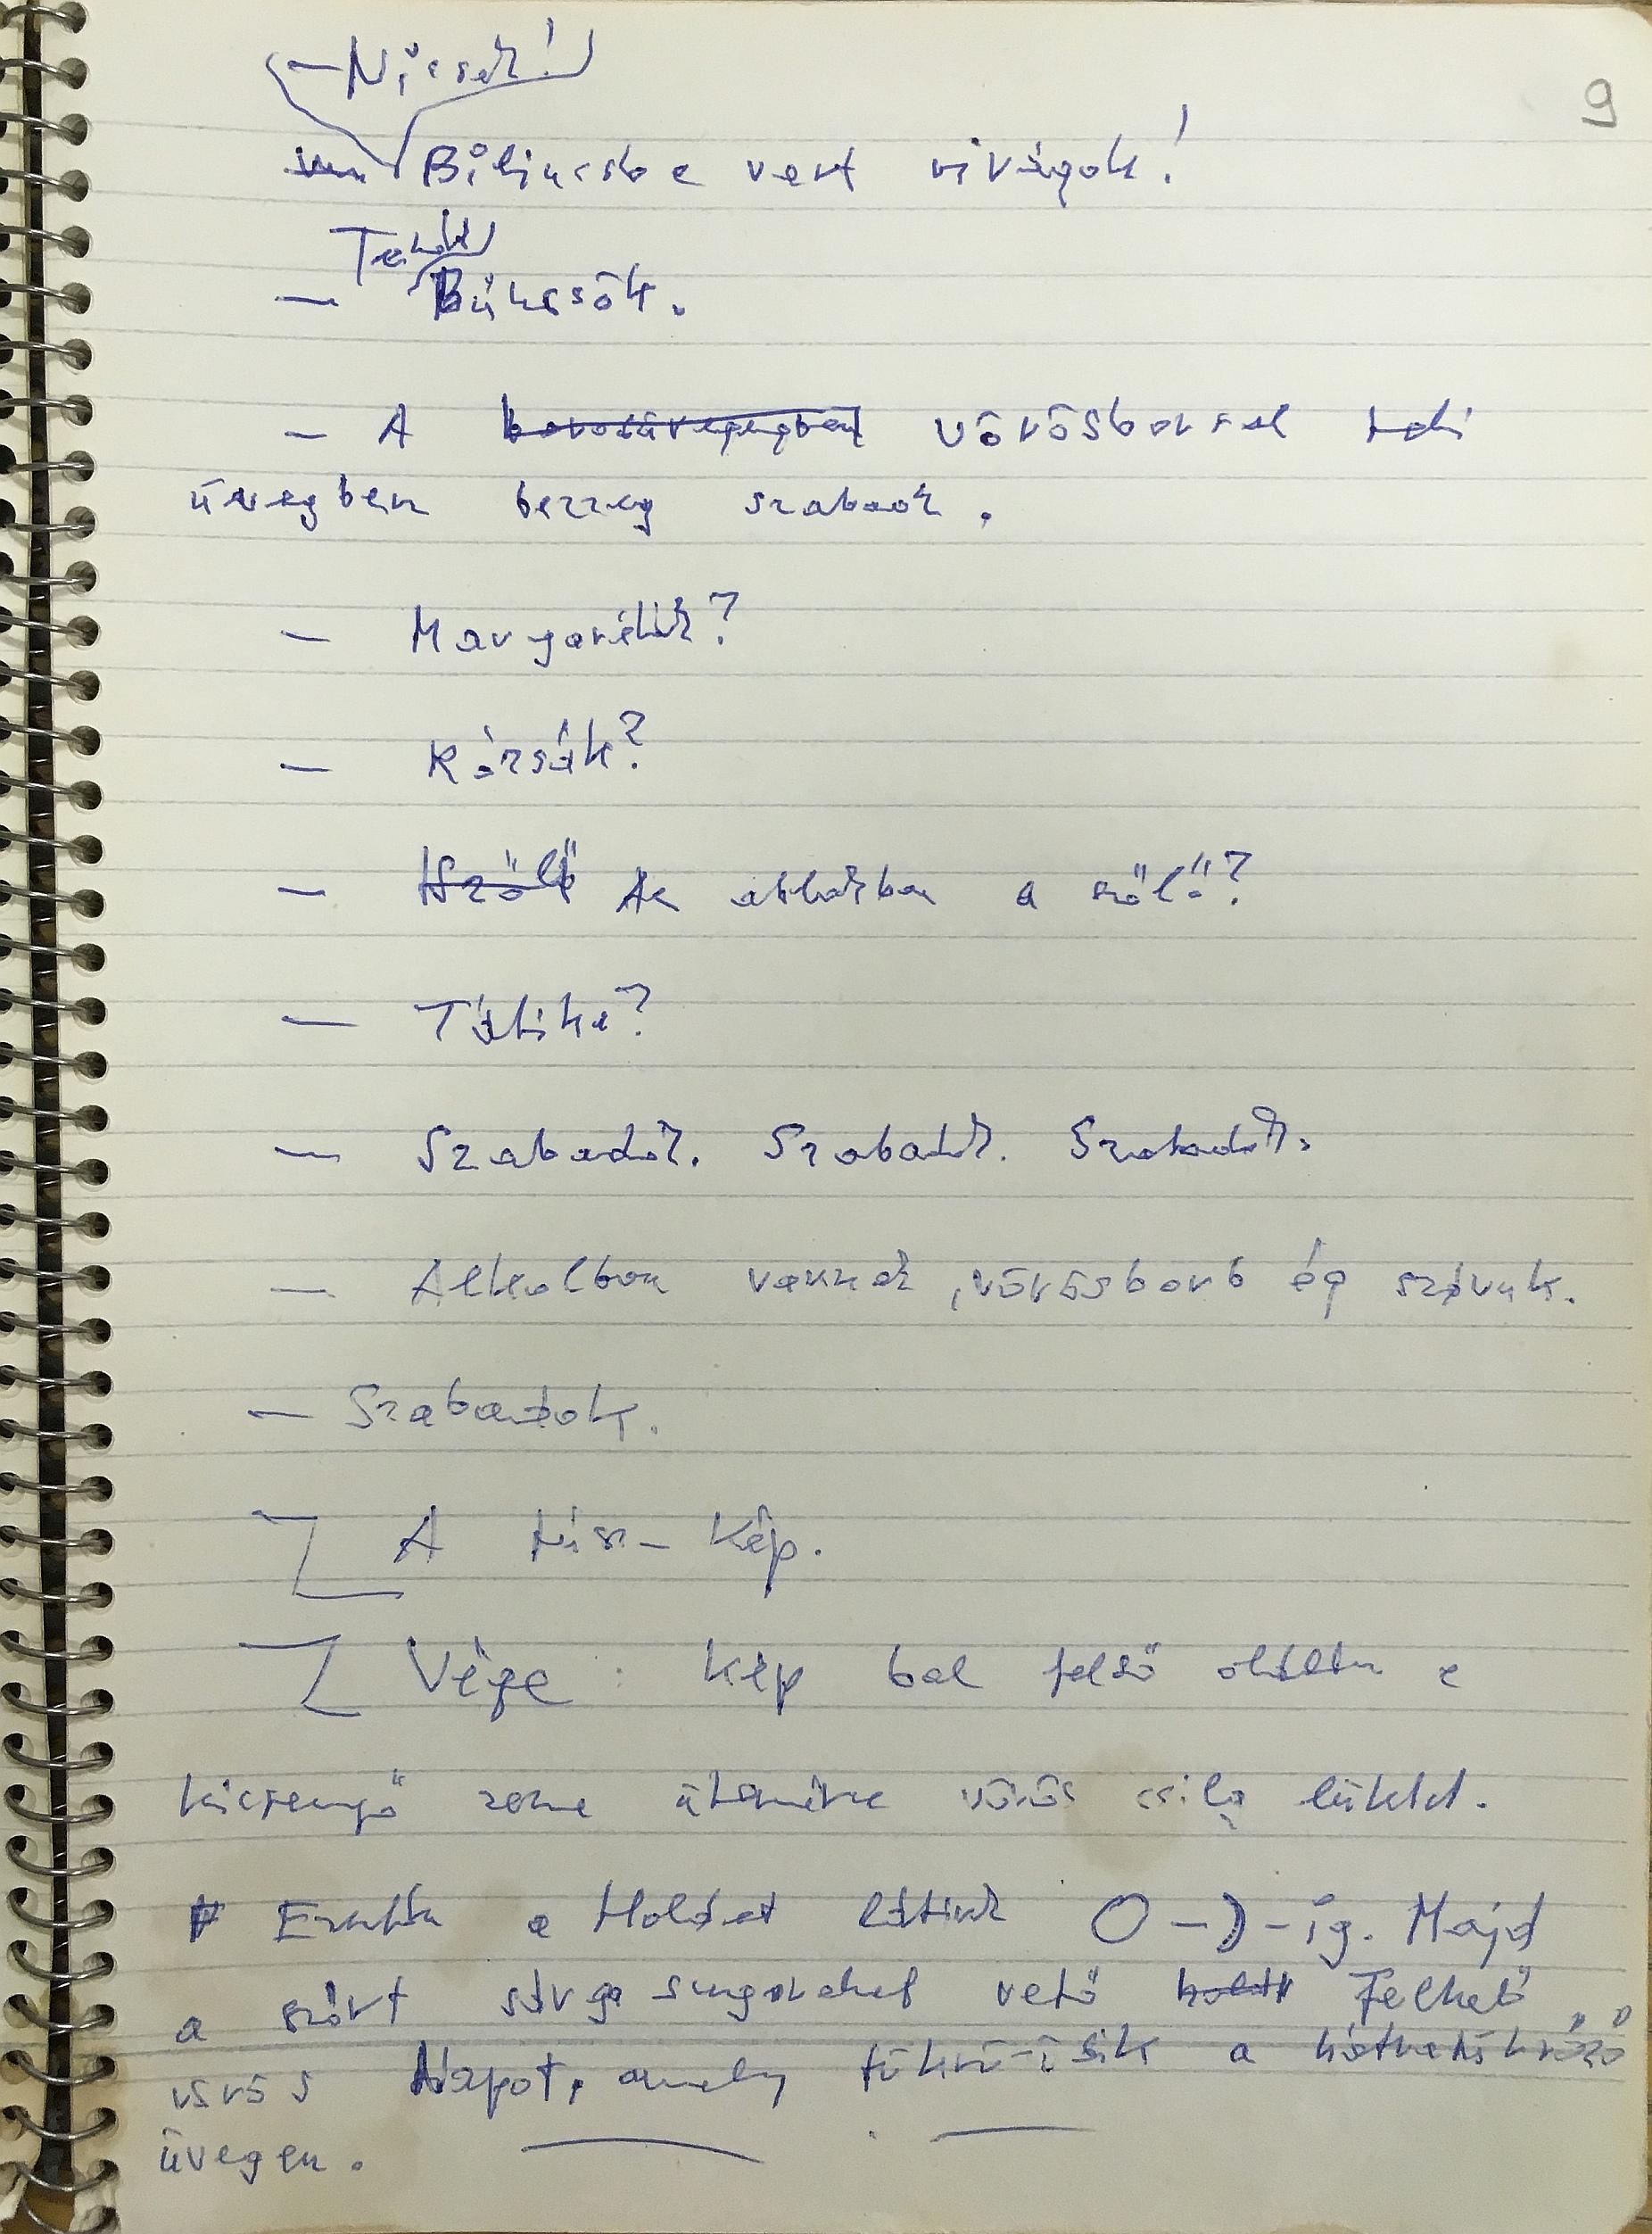 9
– Nicsak!
Bilincsbe vert virágok!
Tehát
– Bűnösök.
– A vörösborral teli
üvegben szabadok.
– Margaréták?
– Rózsák?
– Az ablakban a szőlő?
– Tátika?
– Szabadok. Szabadok. Szabadok.
– Alkoholban vannak, vörösborb ég szívük.
– Szabadok.
A kép.
Vége: Kép bal felső oldalán a
kicsengő zene ütemére vörös csillag lüktet.
Ezután a Holdat látjuk O – ) – ig. Majd
a szórt sárga sugarakat vető Felkelő
vörös Napot, amely tükröződik a
üvegen.